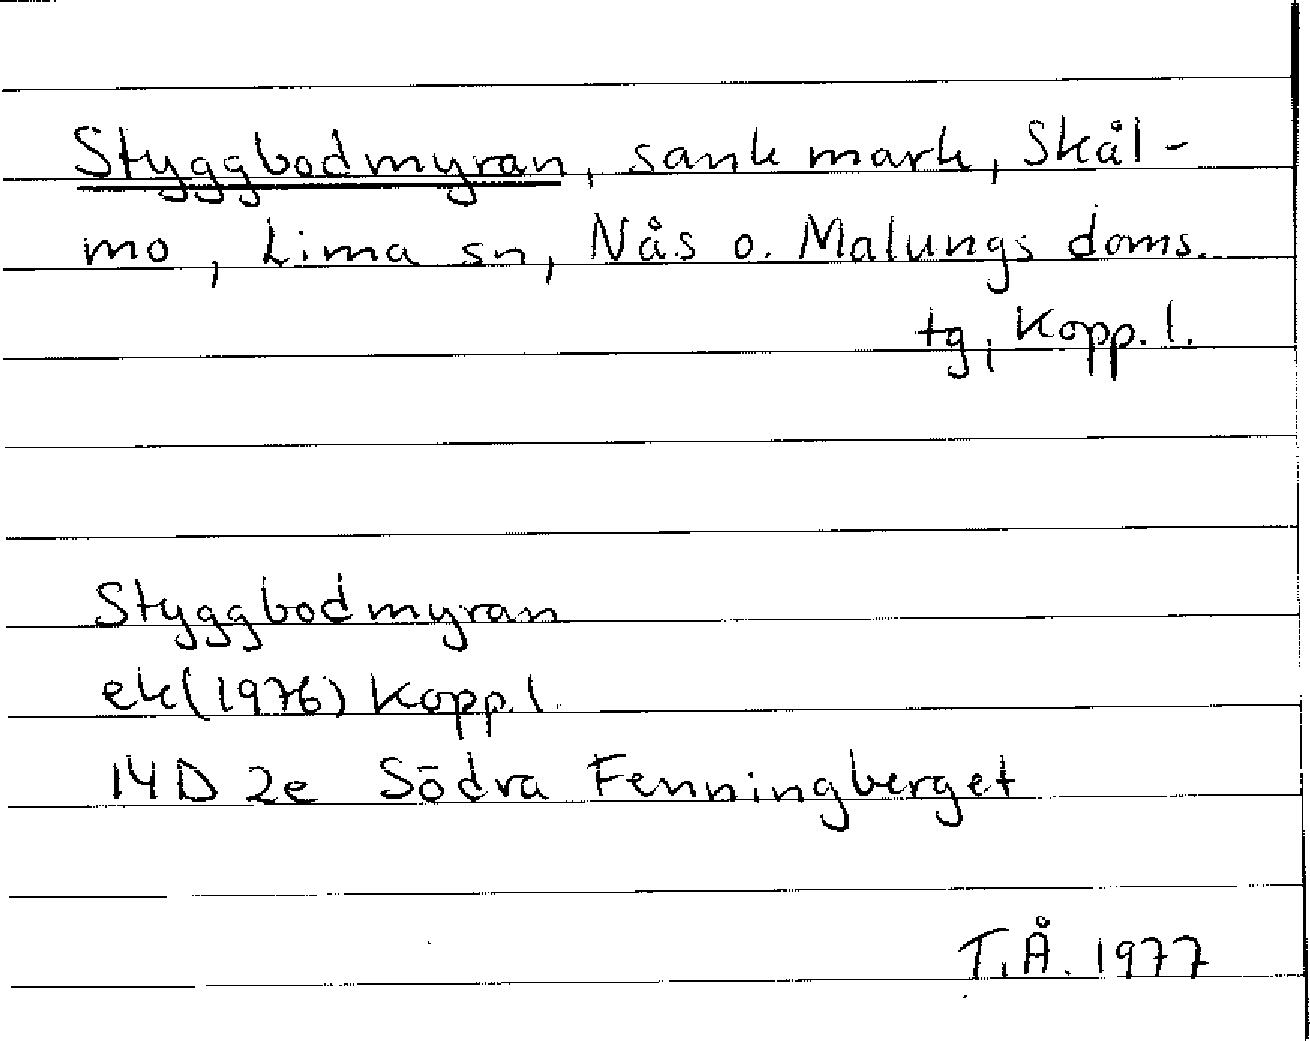 Styggbodmyran, sank mark, Skål-
mo, Lima sn, Nås o. Malungs doms.
tg, Kopp. l.
Styggbodmyran
ek (1976) Kopp. l.
14D 2e Södra Fenningberget
T.Å. 1977